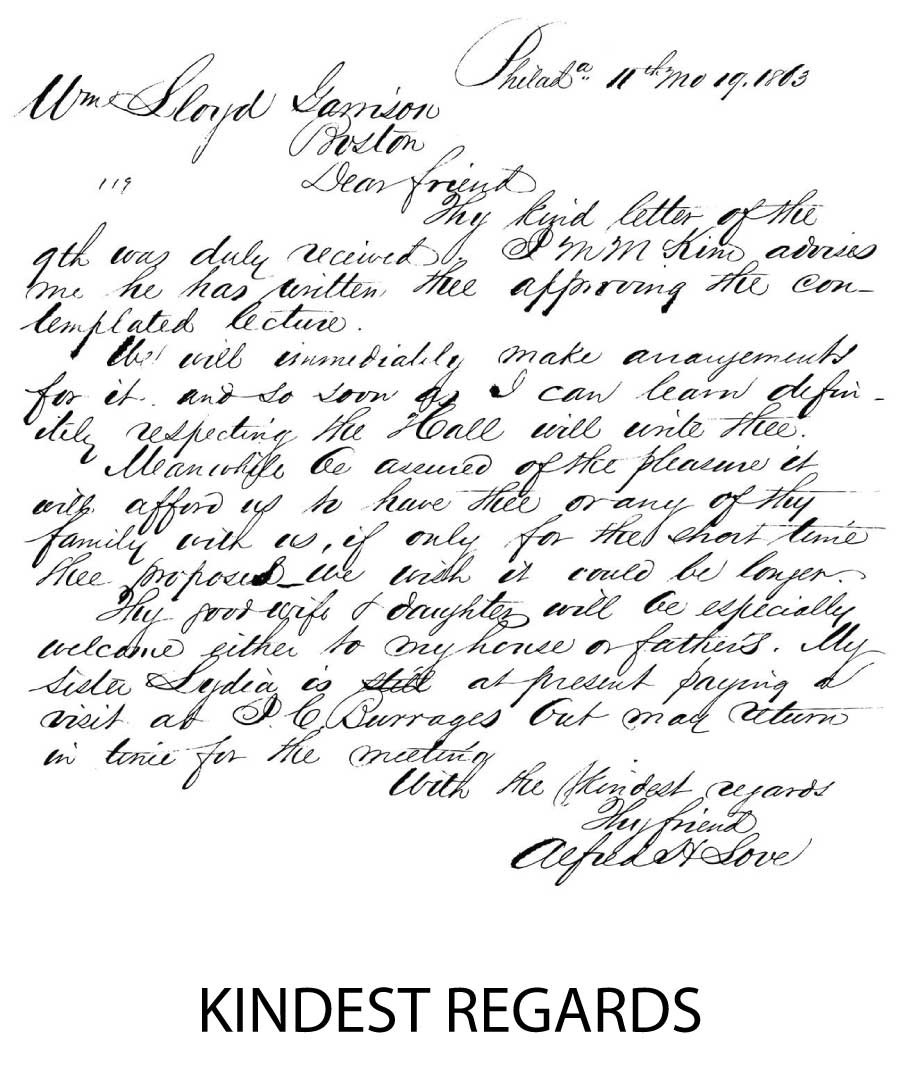 Philad.ª 11th Mo 19. 1863
Wm Lloyd Garrison
Boston
119
Dear friend
Thy kind letter of the
9th was duly received. J M M Kim advises
me he has written thee approving the con-
templated lecture.
We will immediately make arrangements
for it. and so soon as I can learn defin-
itely respecting the Hall will write thee.
Meanwhile be assured of the pleasure it
will afford us to have thee or any of thy
family with us, if only for the short time
thee proposed_we wish it could be longer.
Thy good wife & daughter will be especially
welcome either to my house or father's. My
sister Lydia is still at present paying a
visit at J. C. Burrages but may return
in time for the meeting
With the kindest regards
Thy friend
Alfred H Love
KINDEST REGARDS